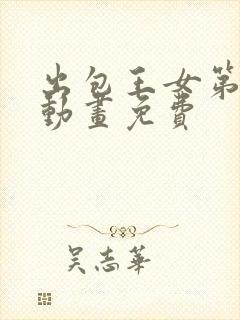 出包王女第
動畫免費
吴志華